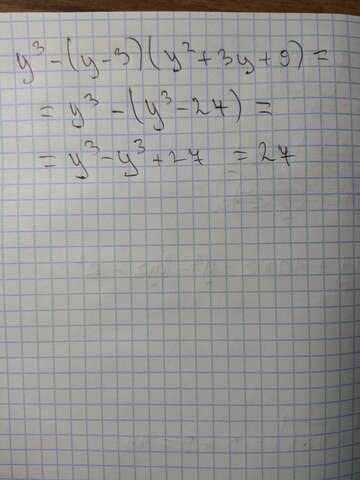 y³ - (y - 3)(y² + 3y + 9) =
= y³ - (y³ - 27) =
= y³ - y³ + 27 = 27